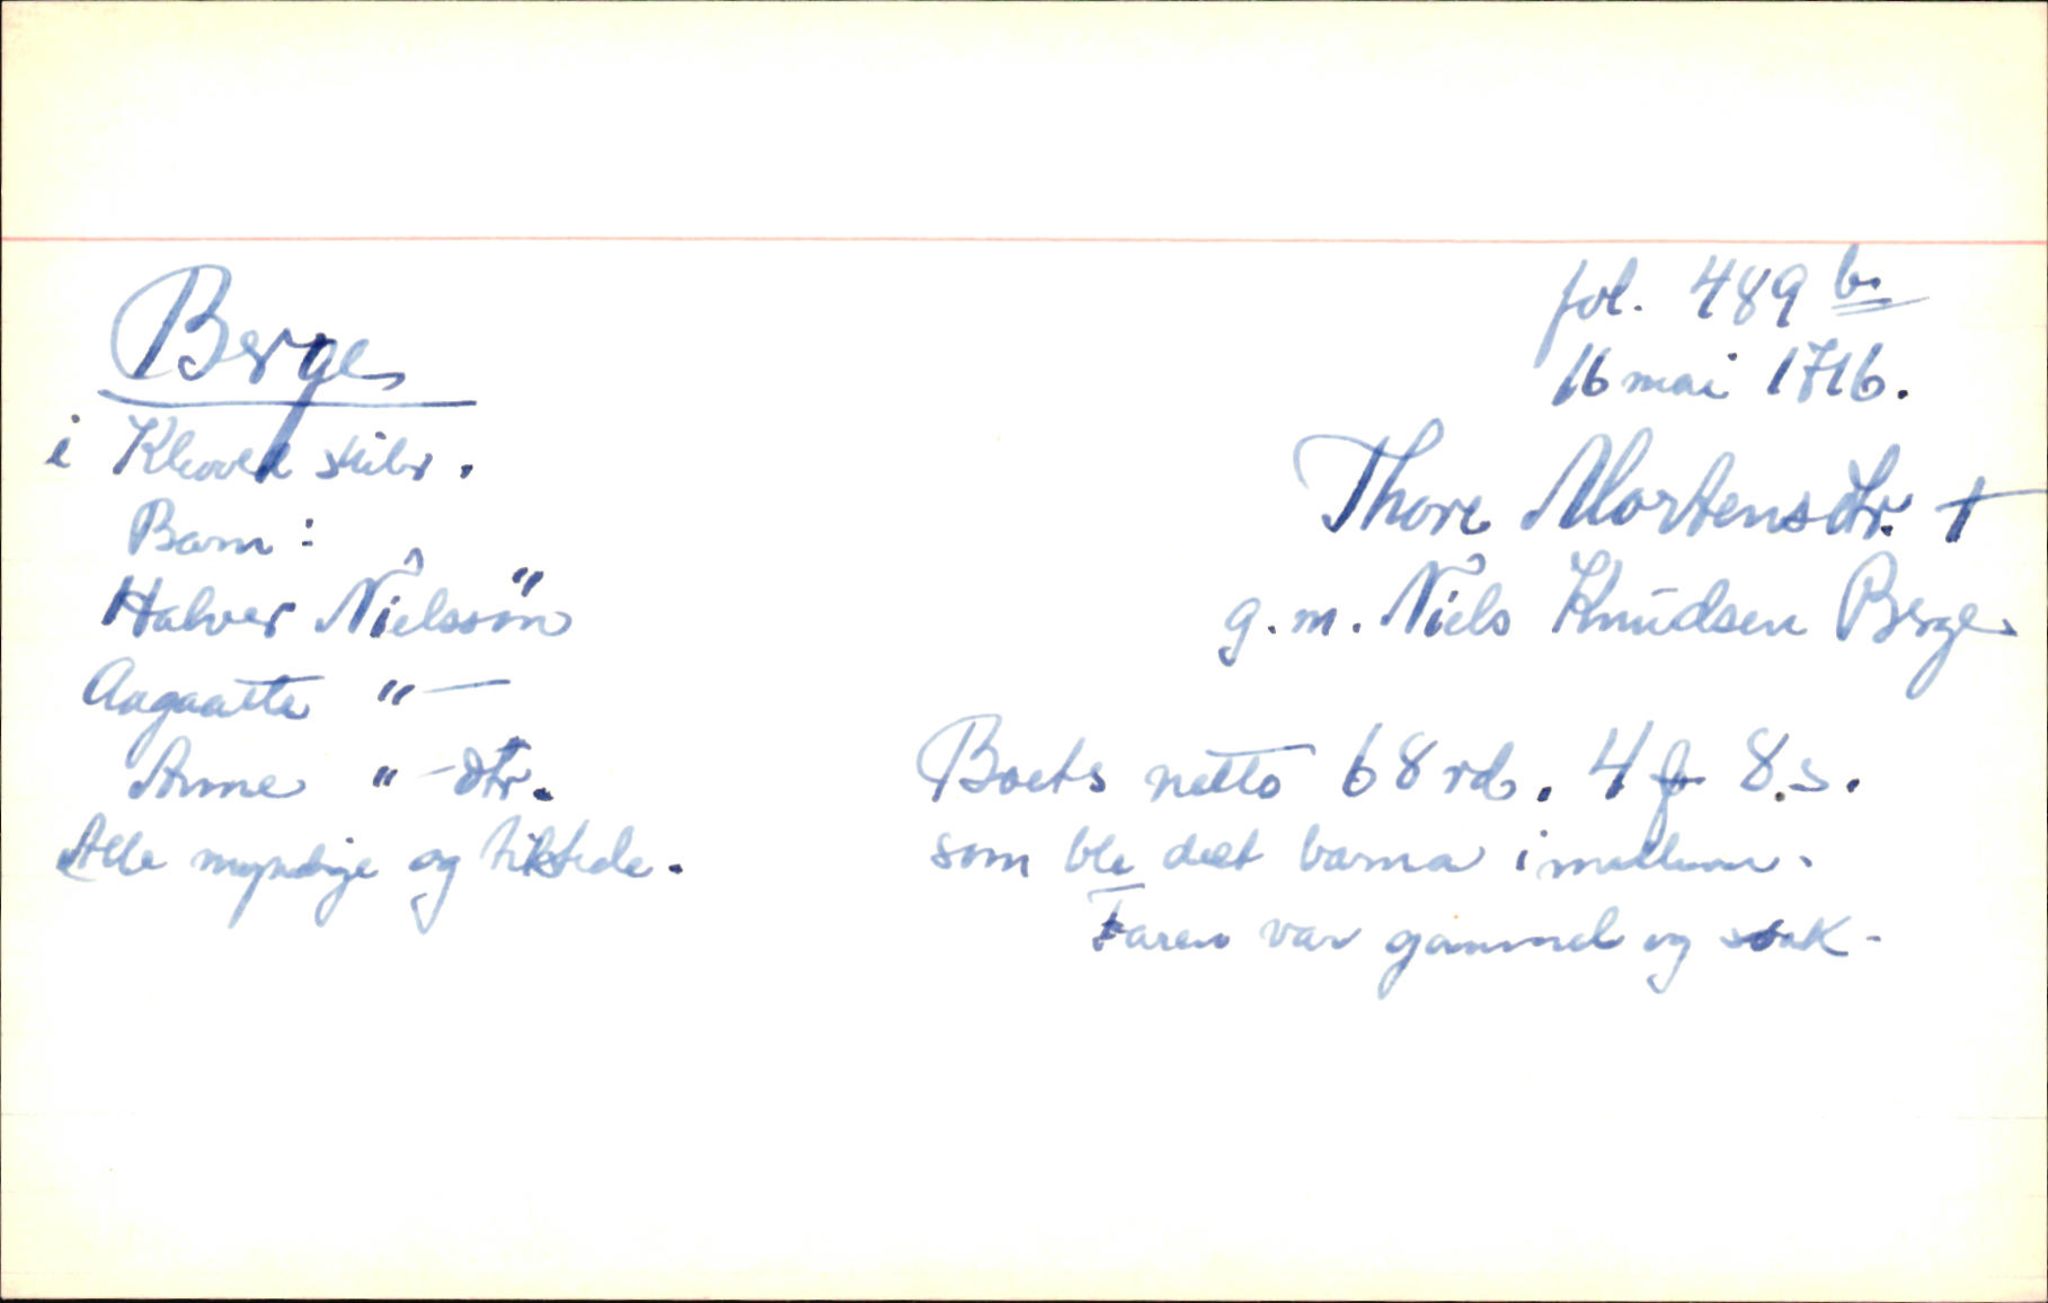 Berge
i Kleoved skibr.
Barn:
Halver Nielssön
Aagaatte " —
Anne " - dtr.
Alle myndige og tilstede.
fol. 489 b.
16 mai 1716.
Thore Mortensdtr. †
g. m. Niels Knudsen Berge
Boets netto 68 rd. 4 8 s.
som ble delt barna imellom.
Faren var gammel og svak -